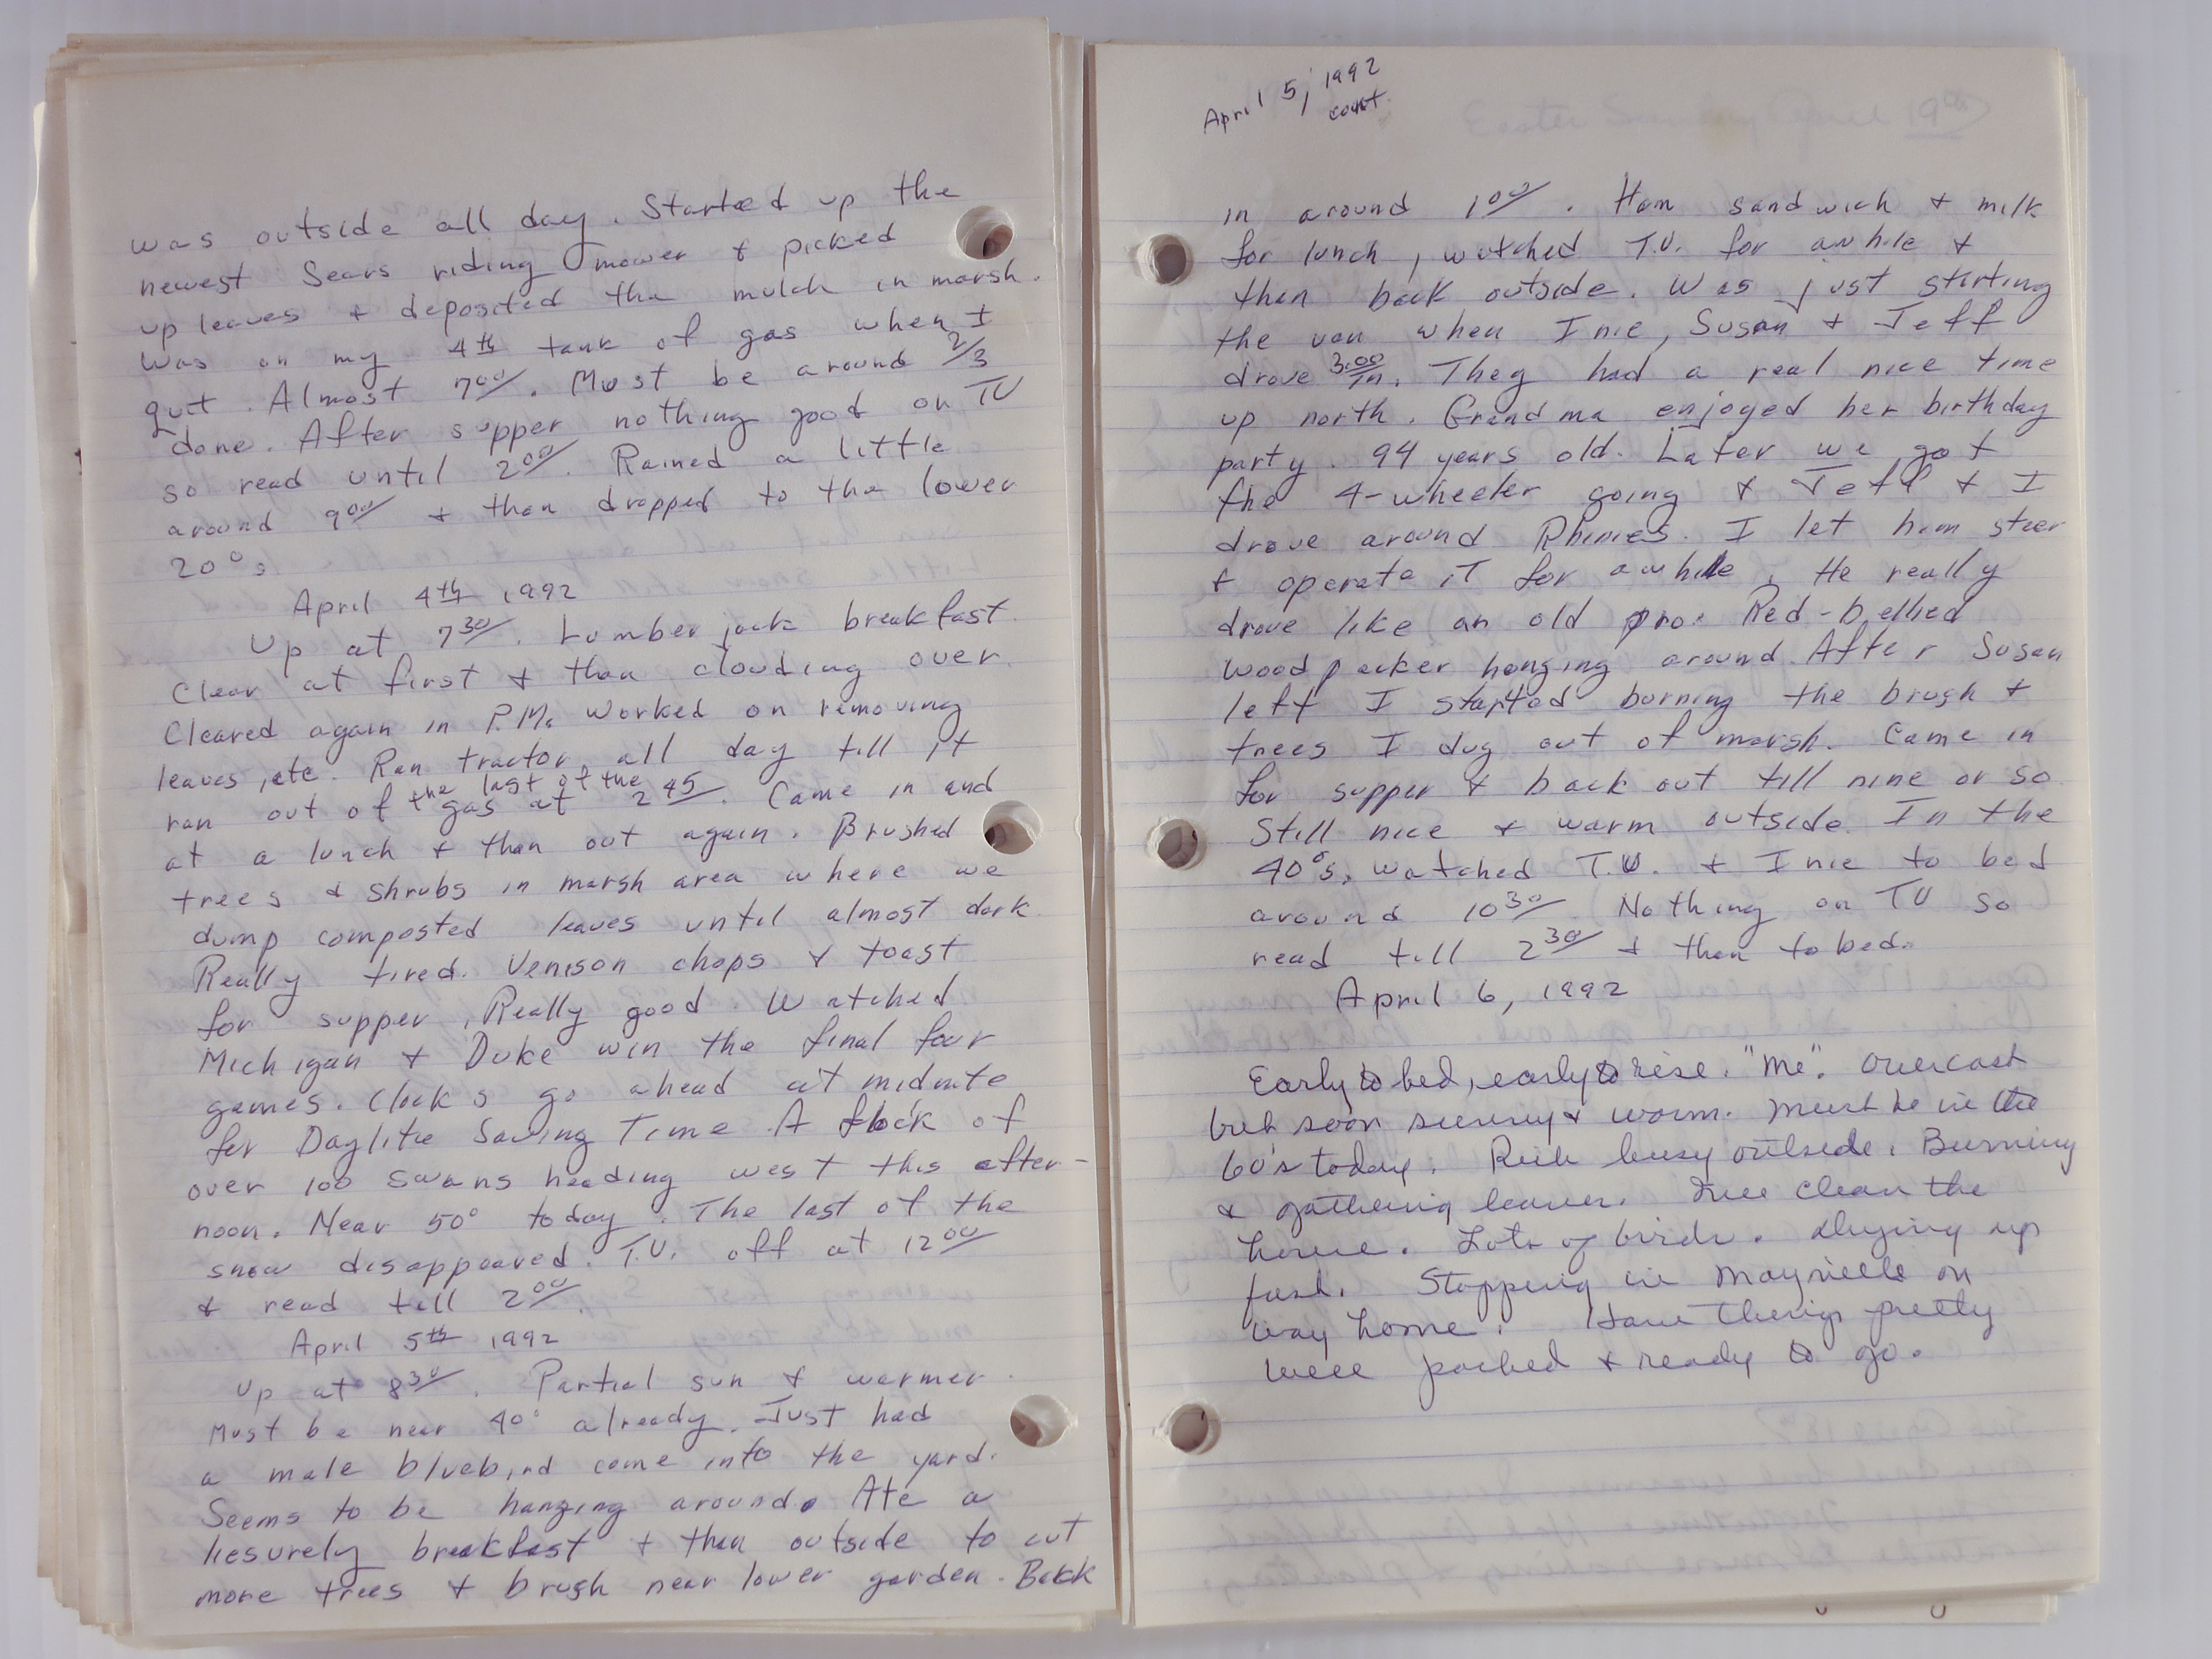 was outside all day. Started up the
newest Sears riding mower & picked
up leaves & deposited the mulch in marsh.
Was on my 4th tank of gas when I
quit. Almost 7 00. Must be around 2/3
done. After supper nothing good on TV
so read until 2 00. Rained a little
around 9 00 & then dropped to the lower
20°s
April 4th 1992
Up at 7 30. Lumber jack breakfast.
Clear at first & then clouding over.
Cleared again in P.M. Worked on removing
leaves, etc. Ran tractor all day till it
ran out of the last of the gas at 2 45. Came in and
at a lunch & then out again. Brushed
trees & shrubs in marsh area where we
dump composted leaves until almost dark.
Really tired. Venison chops & toast
for supper, Really good. Watched
Michigan & Duke win the final four
games. Clocks go ahead at midnite
for Daylite Saving Time. A flock of
over 100 swans heading west this after-
noon. Near 50° today. The last of the
snow disappeared. T.V. off at 12 00
& read till 2 00.
April 5th 1992
Up at 8 30. Partial sun & warmer.
Must be near 40° already. Just had
a male bluebird come into the yard.
Seems to be hanging around. Ate a
liesurely breakfast & then outside to cut
more trees & brush near lower garden. Back
April 5, 1992
cont.
in around 1 00. Ham sandwich & milk
for lunch, watched T.V. for awhile &
then back outside. Was just starting
the van when Inie, Susan & Jeff
drove 3:00 in. They had a real nice time
up north. Grandma enjoyed her birthday
party. 94 years old. Later we got
the 4-wheeler going & Jeff & I
drove around Rhinies. I let him steer
& operate it for awhile. He really
drove like an old pro. Red-bellied
woodpecker hanging around. After Susan
left I started burning the brush &
trees I dug out of marsh. Came in
for supper & back out till nine or so.
Still nice & warm outside. In the
40°s. Watched T.V. & Inie to bed
around 10 30. Nothing on TV so
read till 2 30 & then to bed.
April 6, 1992
Early to bed, early to rise. "Me". Overcast
but soon sunny & warm. Must be in the
60's today. Rich busy outside. Burning
& gathering leaves. Inie clean the
house. Lots of birds. Drying up
fast. Stopping in Mayville on
way home. Have things pretty
well packed & ready to go.